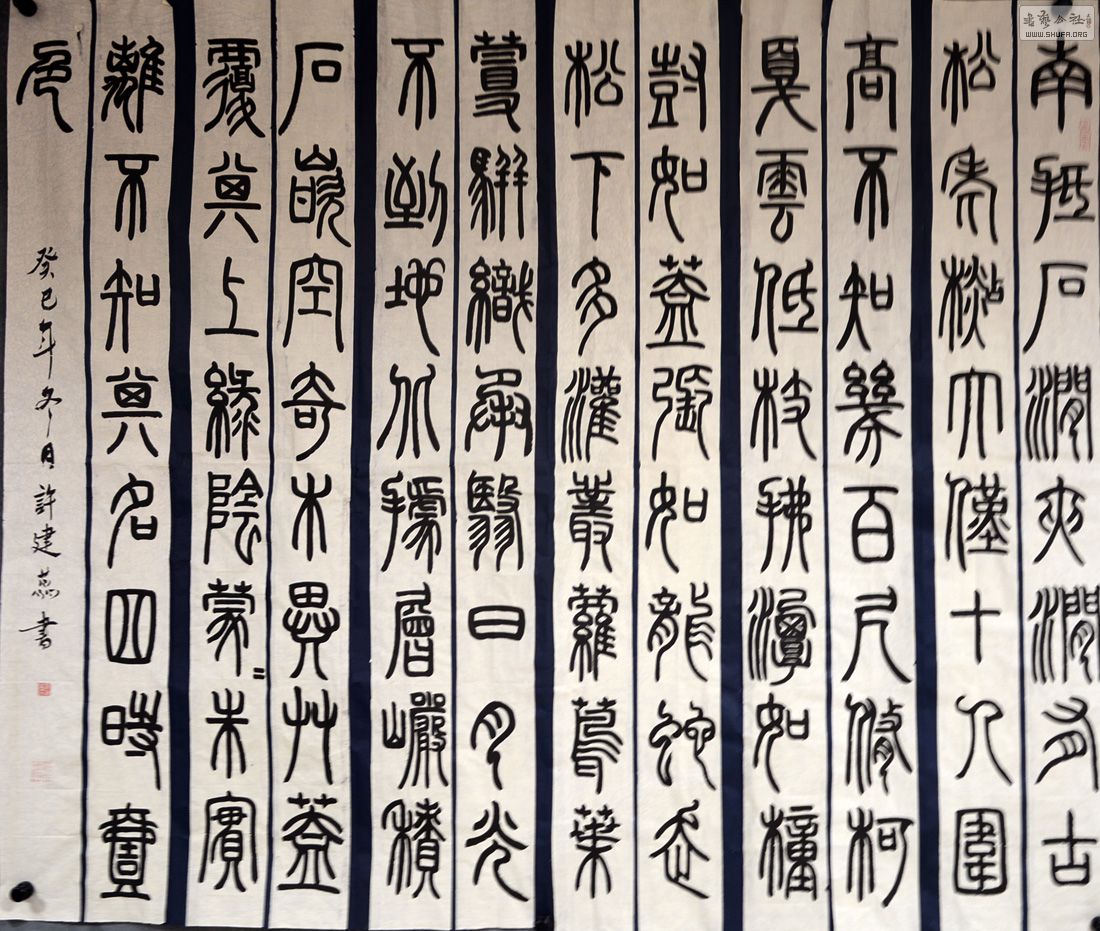 南抵石澗夾澗有古
松老檆大僅十人圍
高不知幾百尺脩柯
戛雲低枝拂潭如橦
尌如蓋張如龍蛇走
松下多灌叢蘿蔦葉
蔓駢織承翳日月光
不到地北據層巖積
石嵌空奇木異艸蓋
覆其上綠陰蒙=朱實
離不知其名四時壹
色
癸巳年冬月許建書
書藝公社
WWW.SHUFA.ORG